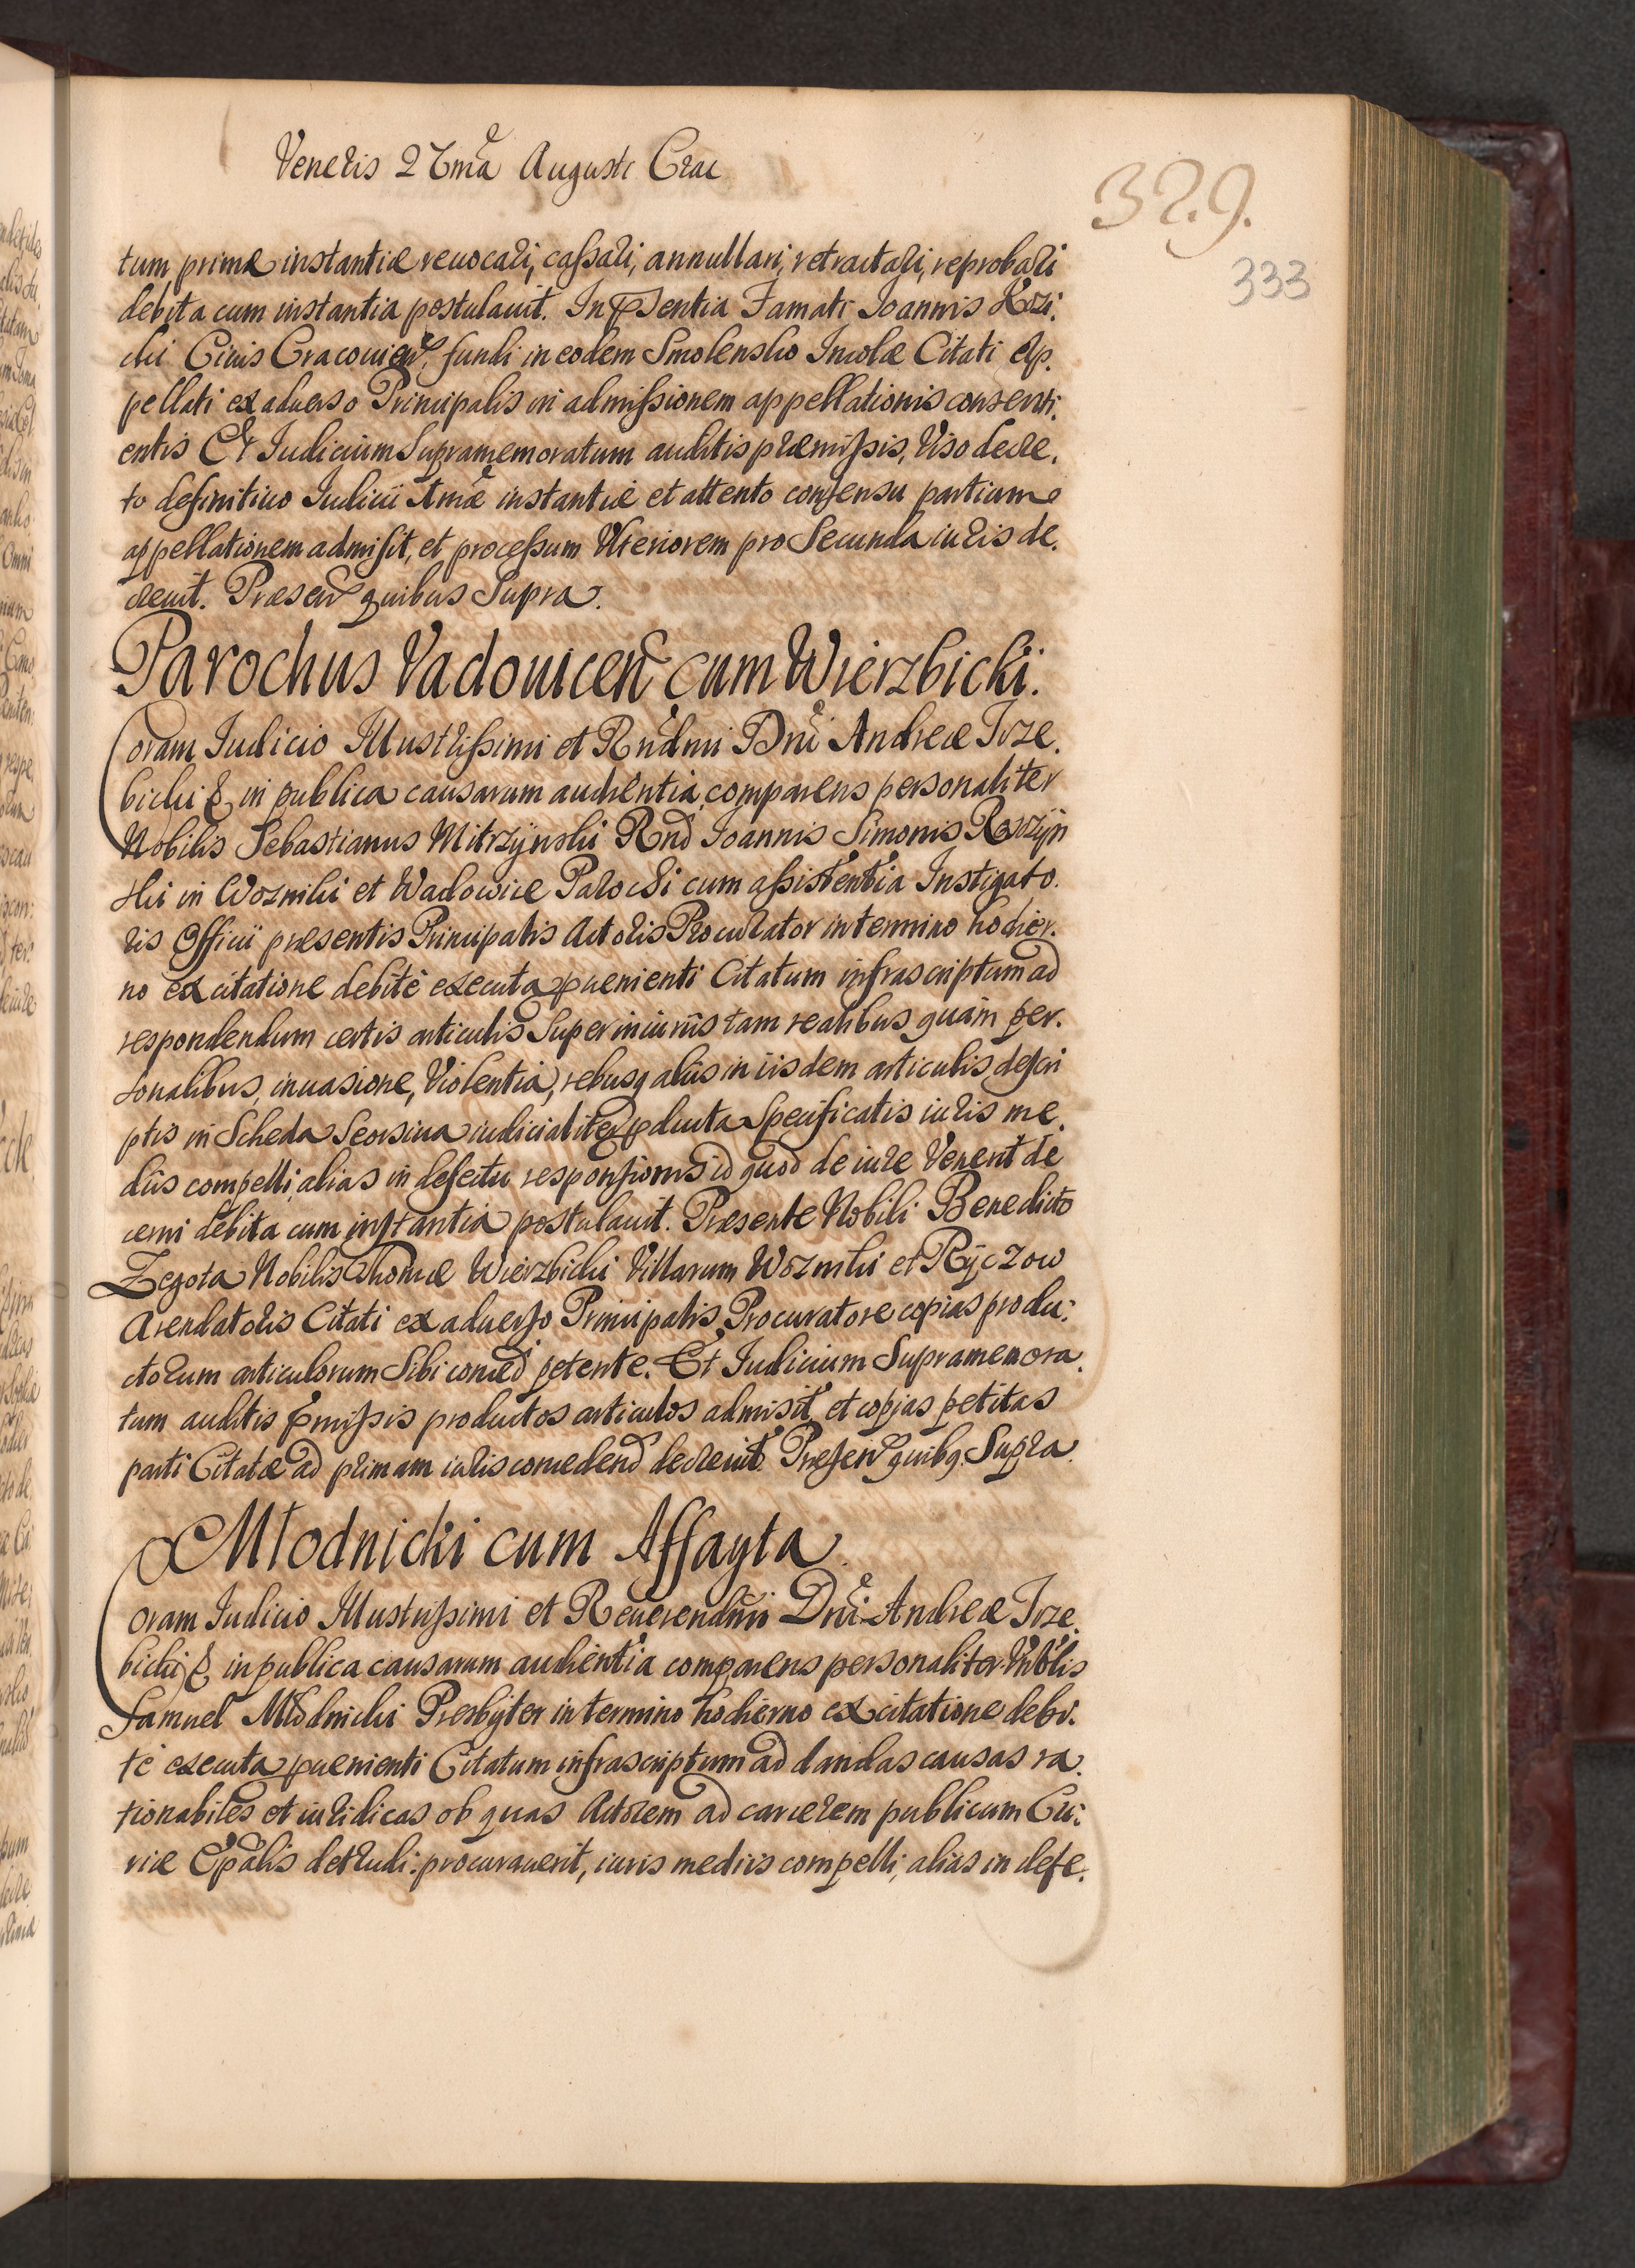 Veneris 27mã Augusti Crac
329.
333
tum primæ instantiæ reuocari, caſsari, annullari, retractari, reprobari
debita cum instantia postulauit. In pñsentia Famati Joannis Krzi:
cki Ciuis Cracouieñ, fundi in eodem Smolensko Incolæ Citati Ap.
pellati ex aduerso Principalis in admiſsionem appellationis consenti.
entis Et Iudicium Supramemoratum auditis præmiſsis, Viso decre.
to definitiuo Iudicii Amæ instantiæ et attento consensu partium
appellationem admisit, et proceſsum Vlteriorem pro Secunda iuris de.
creuit. Præseñ quibus Supra.
Parochus Vadouiceñ cum Wierzbicki.
Coram Iudicio Illustriſsimi et Rñdmi Dñi Andreæ Trze.
bicki & in publica causarum audientia comparens personaliter
Nobilis Sebastianus Mitrzÿnski Rnd Joannis Simonis
ski in Wozniki et Wadowice Parochi cum aſsistentia Instigato.
ris Officii præsentis Principalis Actoris Procurator in termino hodier.
no ex citatione debitè executa puenienti Citatum infrascriptum ad
respondendum certis articulis Super iniuriis tam realibus quàm per.
sonalibus, inuasione, Violentia, rebusq aliis in iisdem articulis descri
ptis in Scheda Seorsiua iudicialiter pducta Specificatis iuris me.
diis compelli, alias in defectu responsionis id quod de iure Venerit de
cerni debita cum instantia postulauit. Præsente Nobili Benedicto
Zegota Nobilis Thomæ Wierzbicki Villarum Wozniki et Rÿczow
Arendatoris Citati ex aduerso Principalis Procuratore copias produ:
ctorum articulorum Sibi conced petente. Et Iudicium Supramemora.
tum auditis pmiſsis productos articulos admisit et copias petitas
parti Citatæ ad primam iuris concedend decreuit. Præseñ quibq Supra.
Młodnicki cum Affayta.
Coram Iudicio Illustriſsimi et Reuerendm̃i Dñi Andreæ Trze.
bicki & in publica causarum audientia comparens personaliter Nbblis
Samuel Młodnicki Presbÿter in termino hodierno ex citatione debi.
tè executa puenienti Citatum infrascriptum ad dandas causas ra.
tionabiles et iuridicas ob quas Actorem ad carcerem publicum Cu:
riæ Epalis detrudi procurauerit, iuris mediis compelli, alias in defe.